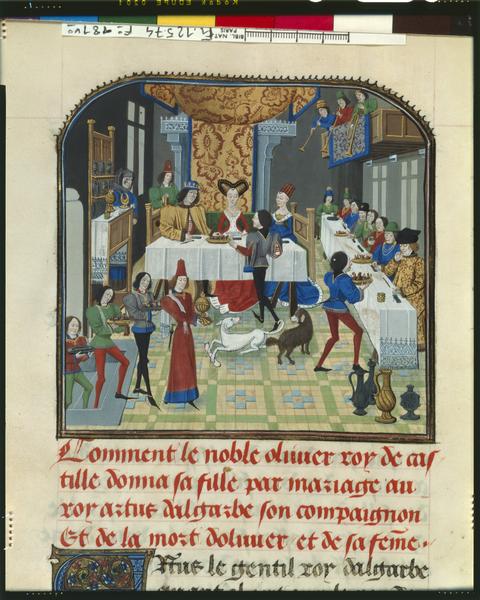 Kodak
BIBL. NAT. PARIS
Fr. 12574 F° 181vo
Comment le noble oliuier roy de cas
tille donna sa fille par mariage au
roy artus dalgarbe son compaignon
Et de la mort doliuier et de sa feme.
Artus le gentil roy dalgarbe